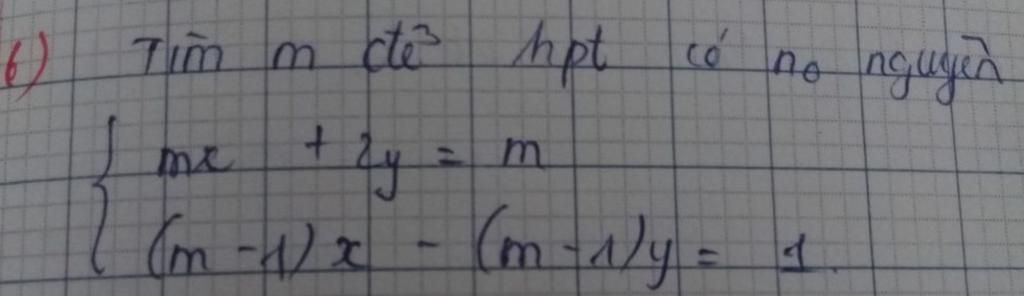 6) Tìm m để hpt có no nguyên
mx + 2y = m
(m - 1)x - (m - 1)y = 1.